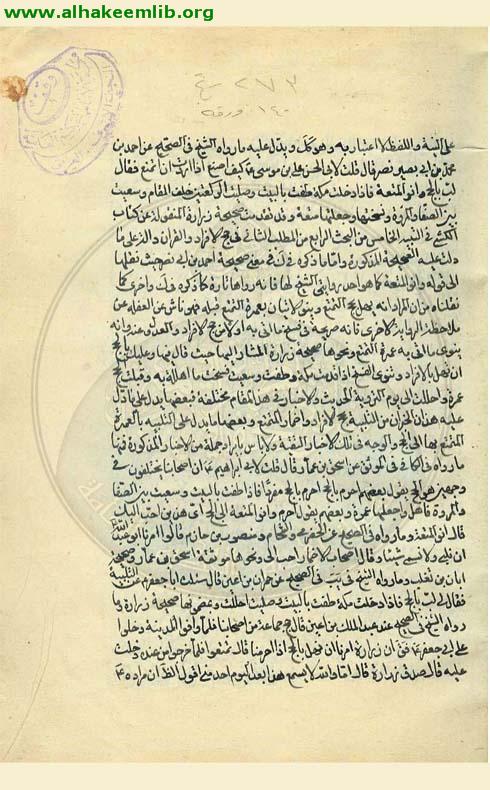 www.alhakeemlib.org
٢٧٣
١٤٠ ورقه
على النية واللفظ لا اعتبار به وهو كك ويدل عليه ما رواه الشيخ في الصحيح عن احمد بن
محمد بن ابي نصر قال قلت لابي الحسن علي بن موسى كيف اصنع اذا اردت ان اتمتع فقال
لب بالحج وانو المتعة فاذا دخلت مكة طفت بالبيت وصليت الركعتين خلف المقام وسعيت
بين الصفا والمروة وجعلتها متعة وقد تقدمت صحيحة زرارة المنقولة عن كتاب
الكشي في الخامس من البحث الرابع من المطلب الثاني في حج الافراد والقران والذي
دلت عليه الصحيحة المذكورة واما ما ذكره في معنى صحيحة احمد بن ابي نصر حيث نقلها
الى قوله وانو المتعة كما هو احد روايتي الشيخ لها فانه رواها تارة كما ذكره واخرى كما
نقلناه من ان المراد انه يهل بحج التمتع وينوي الاتيان بعمرة التمتع قبله فهو ناش عن الغفلة عن
ملاحظة الرواية الاخرى فانه صريحة في فسخ ما اتى به اولا من حج الافراد والعدول عنه وانه
ينوي ما اتى به عمرة التمتع ونحوها صحيحة زرارة المشار اليها حيث قال فيها وعليك بالحج
ان تهل بالافراد وتنوي الفسخ اذا قدمت مكة وطفت وسعيت فسخت ما اهللت به وقلبت الحج
عمرة واحللت الى يوم التروية الحديث والاخبار في هذا المقام مختلفة فبعضها يدل على ما دل
عليه هذان الخبران من التلبية بحج الافراد واضمار التمتع وبعضها ما يدل على التلبية بالعمرة
المتمتع بها الى الحج والوجه في تلك الاخبار التقية ولا باس بايراد جملة من الاخبار المذكورة فمنها
ما رواه في الكافي في الموثق عن اسحق بن عمار قال قلت لابي ابراهيم ان اصحابنا يختلفون في
وجهين من الحج يقول بعضهم احرم بالحج مفردا فاذا طفت بالبيت وسعيت بين الصفا
والمروة فاحل واجعلها عمرة وبعضهم يقول احرم وانو المتعة الى الحج اي هذين احب اليك
قال انو المتعة وما رواه في الصحيح عن الحضرمي والشحام ومنصور بن حازم قالوا امرنا ابو عبد الله
ان نلبي ولا نسمي شيئا وقال اصحاب الاضمار احب الي ونحوها موثقة اسحق بن عمار وصحيحة
ابان بن تغلب وما رواه الشيخ في الصحيح عن حمران بن اعين قال سئلت ابا جعفر عن التلبية
فقال لي لب بالحج فاذا دخلت مكة طفت بالبيت وصليت واحللت وبمعناها صحيحة زرارة وما
رواه الشيخ في الصحيح عن عبد الملك بن اعين قال حج جماعة من اصحابنا فلما وافوا المدينة ودخلوا
على ابي جعفر فقالوا ان زرارة امرنا ان نهل بالحج اذا احرمنا قال تمتعوا فلما خرجوا من عنده دخلت
عليه قال صدق زرارة قال اما والله لا يسمع هذا بعد اليوم احد مني اقول الظ ان مراده